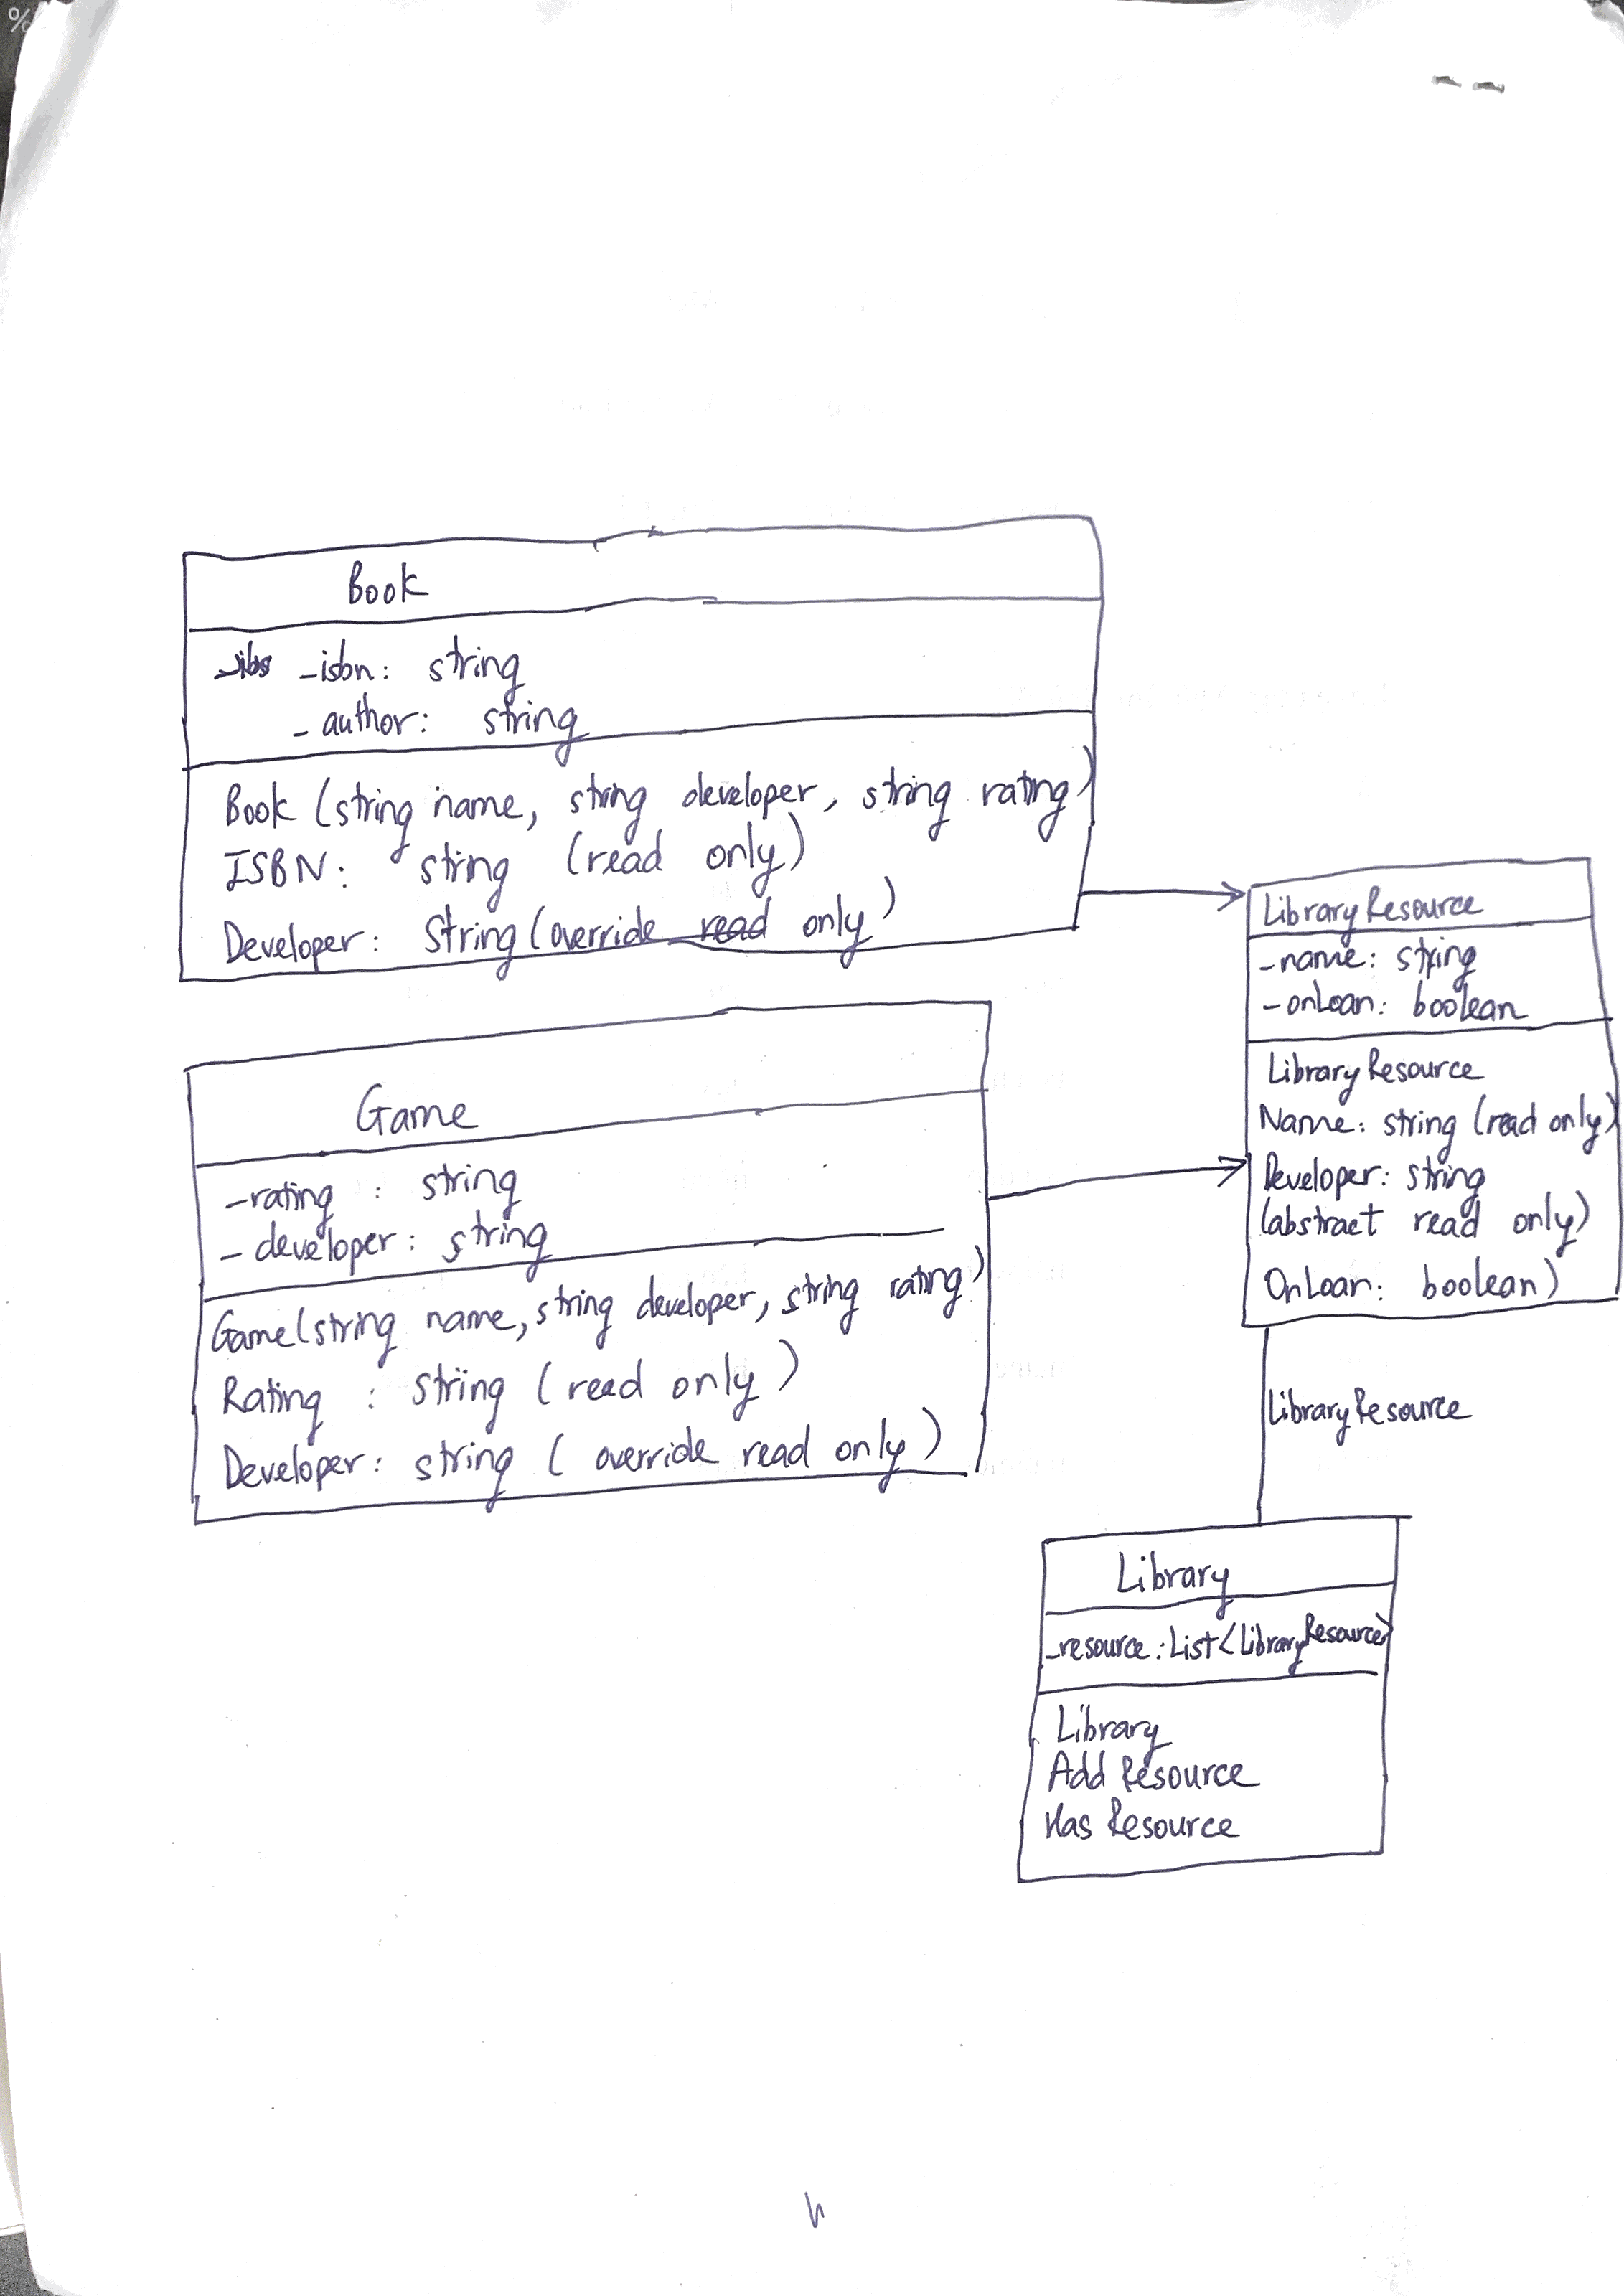 %
Book
-isbn: string
- author: string
Book (string name, string developer, string rating)
ISBN: string (read only)
Developer: String (override read only)
Game
-rating : string
- developer: string
Game(string name, string developer, string rating)
Rating : string (read only)
Developer: string ( override read only)
LibraryResource
-name: string
-onLoan: boolean
LibraryResource
Name: string (read only)
Developer: string
(abstract read only)
OnLoan: boolean)
LibraryResource
Library
-resource: List<LibraryResource>
Library
Add Resource
Has Resource